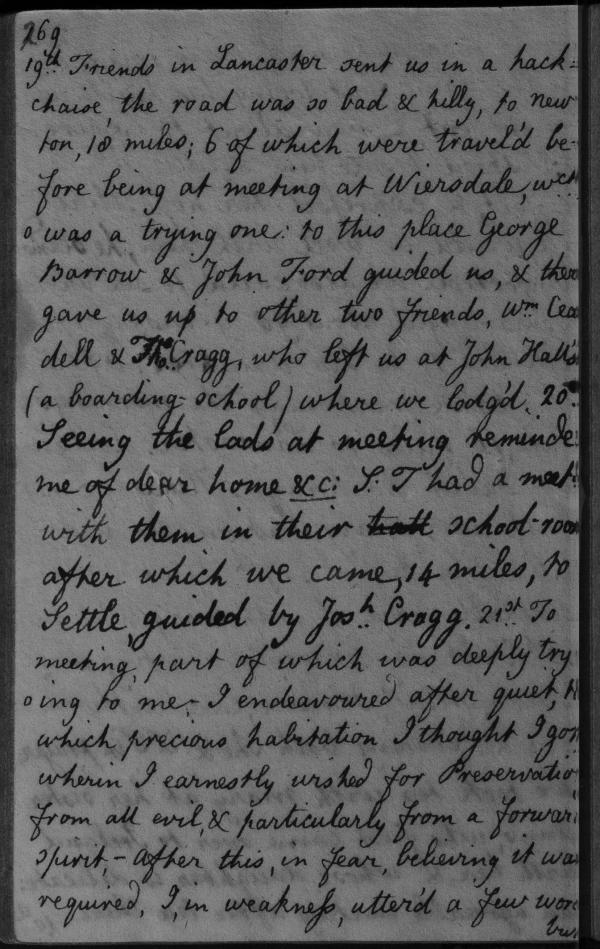 269
19th Friends in Lancaster sent us in a hack-
chaise, the road was so bad & hilly, to new
ton, 18 miles; 6 of which were travel'd be-
fore being at meeting at Wiersdale, wch
o was a trying one: to this place George
Barrow & John Ford guided us, & then
gave us up to other two friends, Wm Cea
dell & Thos. Cragg, who left us at John Hall's
(a boarding-school) where we lodg'd. 20th
Seeing the lads at meeting reminde
me of dear home &c: S: T had a meet
with them in their school-room
after which we came, 14 miles, to
Settle, guided by Josh. Cragg. 21st To
meeting, part of which was deeply try
o ing to me;- I endeavoured after quiet,
which precious habitation I thought I got
wherein I earnestly wished for Preservatio
from all evil, & particularly from a forwar
spirit,- After this, in fear, believing it was
required, I, in weakness, utter'd a few wor
but